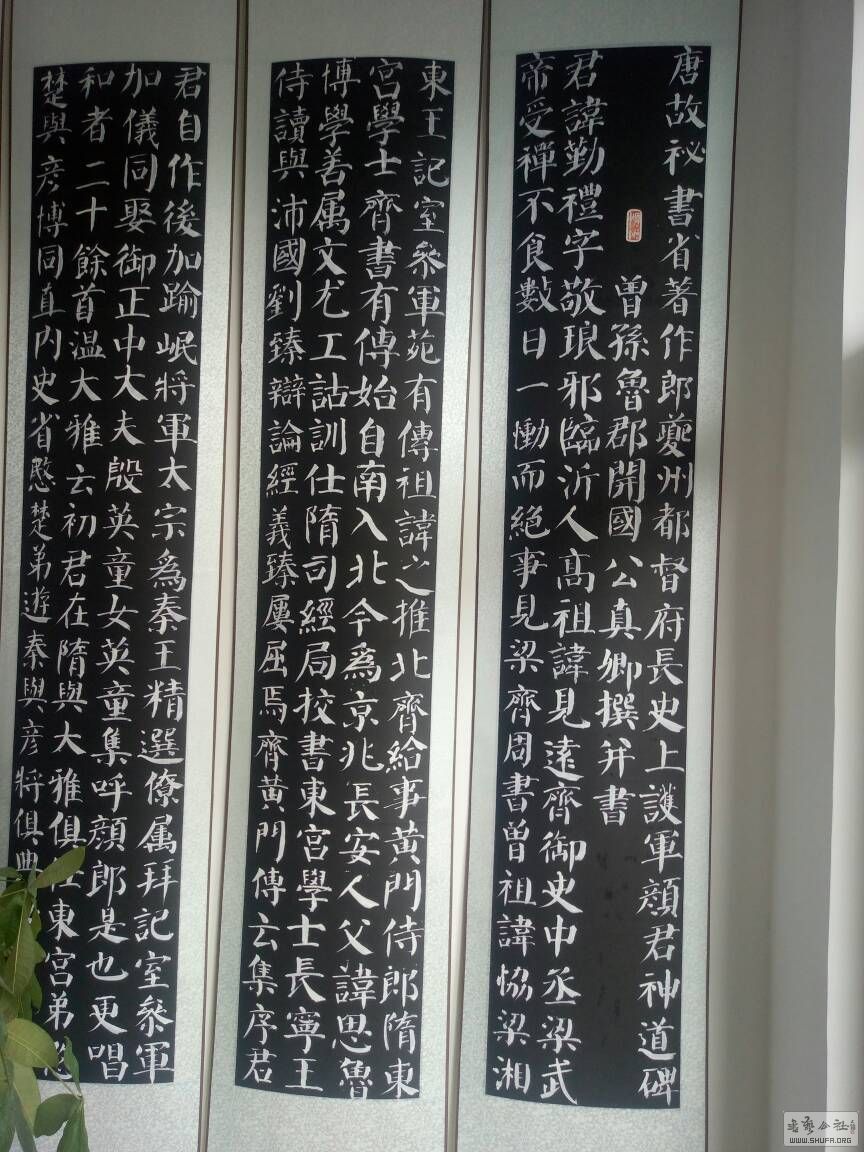 唐故祕書省著作郎夔州都督府長史上護軍顏君神道碑
曾孫魯郡開國公真卿撰并書
君諱勤禮字敬琅邪臨沂人高祖諱見遠齊御史中丞梁武
帝受禪不食數日一慟而絕事見梁齊周書曾祖諱恊梁湘
東王記室參軍苑有傳祖諱之推北齊給事黃門侍郎隋東
宮學士齊書有傳始自南入北今為京兆長安人父諱思魯
博學善属文尤工詁訓仕隋司經局校書東宮學士長寧王
侍讀與沛國劉臻辯論經義臻屢屈焉齊黃門傳云集序君
君自作後加踰岷將軍太宗為秦王精選僚属拜記室參軍
加儀同娶御正中大夫殷英童女英童集呼顏郎是也更唱
和者二十餘首溫大雅云初君在隋與大雅俱仕東宮弟
楚與彥博同直內史省愍楚弟遊秦與彥將俱典
WWW.SHUFA.ORG